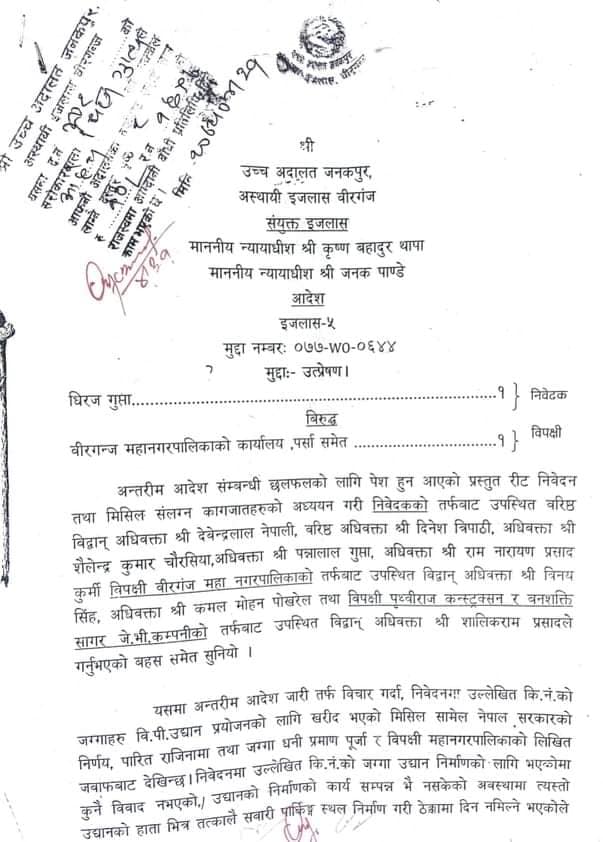 श्री उच्च अदालत जनकपुर
अस्थायी इजलास वीरगन्ज
श्री
उच्च अदालत जनकपुर,
अस्थायी इजलास वीरगंज
संयुक्त इजलास
माननीय न्यायाधीश श्री कृष्ण बहादुर थापा
माननीय न्यायाधीश श्री जनक पाण्डे
आदेश
इजलास-५
मुद्दा नम्बरः ०७७-WO-०६४४
मुद्दाः- उत्प्रेषण।
धिरज गुप्ता..........................................................................१ } निवेदक
विरुद्ध
वीरगन्ज महानगरपालिकाको कार्यालय ,पर्सा समेत .............................१ } विपक्षी
अन्तरीम आदेश सम्बन्धी छलफलको लागि पेश हुन आएको प्रस्तुत रीट निवेदन
तथा मिसिल संलग्न कागजातहरुको अध्ययन गरी निवेदकको तर्फबाट उपस्थित वरिष्ठ
विद्वान् अधिवक्ता श्री देवेन्द्रलाल नेपाली, वरिष्ठ अधिवक्ता श्री दिनेश त्रिपाठी, अधिवक्ता श्री
शैलेन्द्र कुमार चौरसिया,अधिवक्ता श्री पन्नालाल गुप्ता, अधिवक्ता श्री राम नारायण प्रसाद
कुर्मी विपक्षी वीरगंज महा नगरपालिकाको तर्फबाट उपस्थित विद्वान् अधिवक्ता श्री विनय
सिंह, अधिवक्ता श्री कमल मोहन पोखरेल तथा विपक्षी पृथ्वीराज कन्स्ट्रक्सन र वनशक्ति
सागर जे.भी.कम्पनीको तर्फबाट उपस्थित विद्वान् अधिवक्ता श्री शालिकराम प्रसादले
गर्नुभएको बहस समेत सुनियो ।
यसमा अन्तरीम आदेश जारी तर्फ विचार गर्दा, निवेदनमा उल्लेखित कि.नं.को
जग्गाहरु वि.पी.उद्यान प्रयोजनको लागि खरीद भएको मिसिल सामेल नेपाल सरकारको
निर्णय, पारित राजिनामा तथा जग्गा धनी प्रमाण पूर्जा र विपक्षी महानगरपालिकाको लिखित
जवाफबाट देखिन्छ। निवेदनमा उल्लेखित कि.नं.को जग्गा उद्यान निर्माणको लागि भएकोमा
कुनै विवाद नभएको,/ उद्यानको निर्माणको कार्य सम्पन्न भै नसकेको अवस्थामा त्यस्तो
उद्यानको हाता भित्र तत्कालै सवारी पार्किङ्ग स्थल निर्माण गरी ठेक्कामा दिन नमिल्ने भएकोले